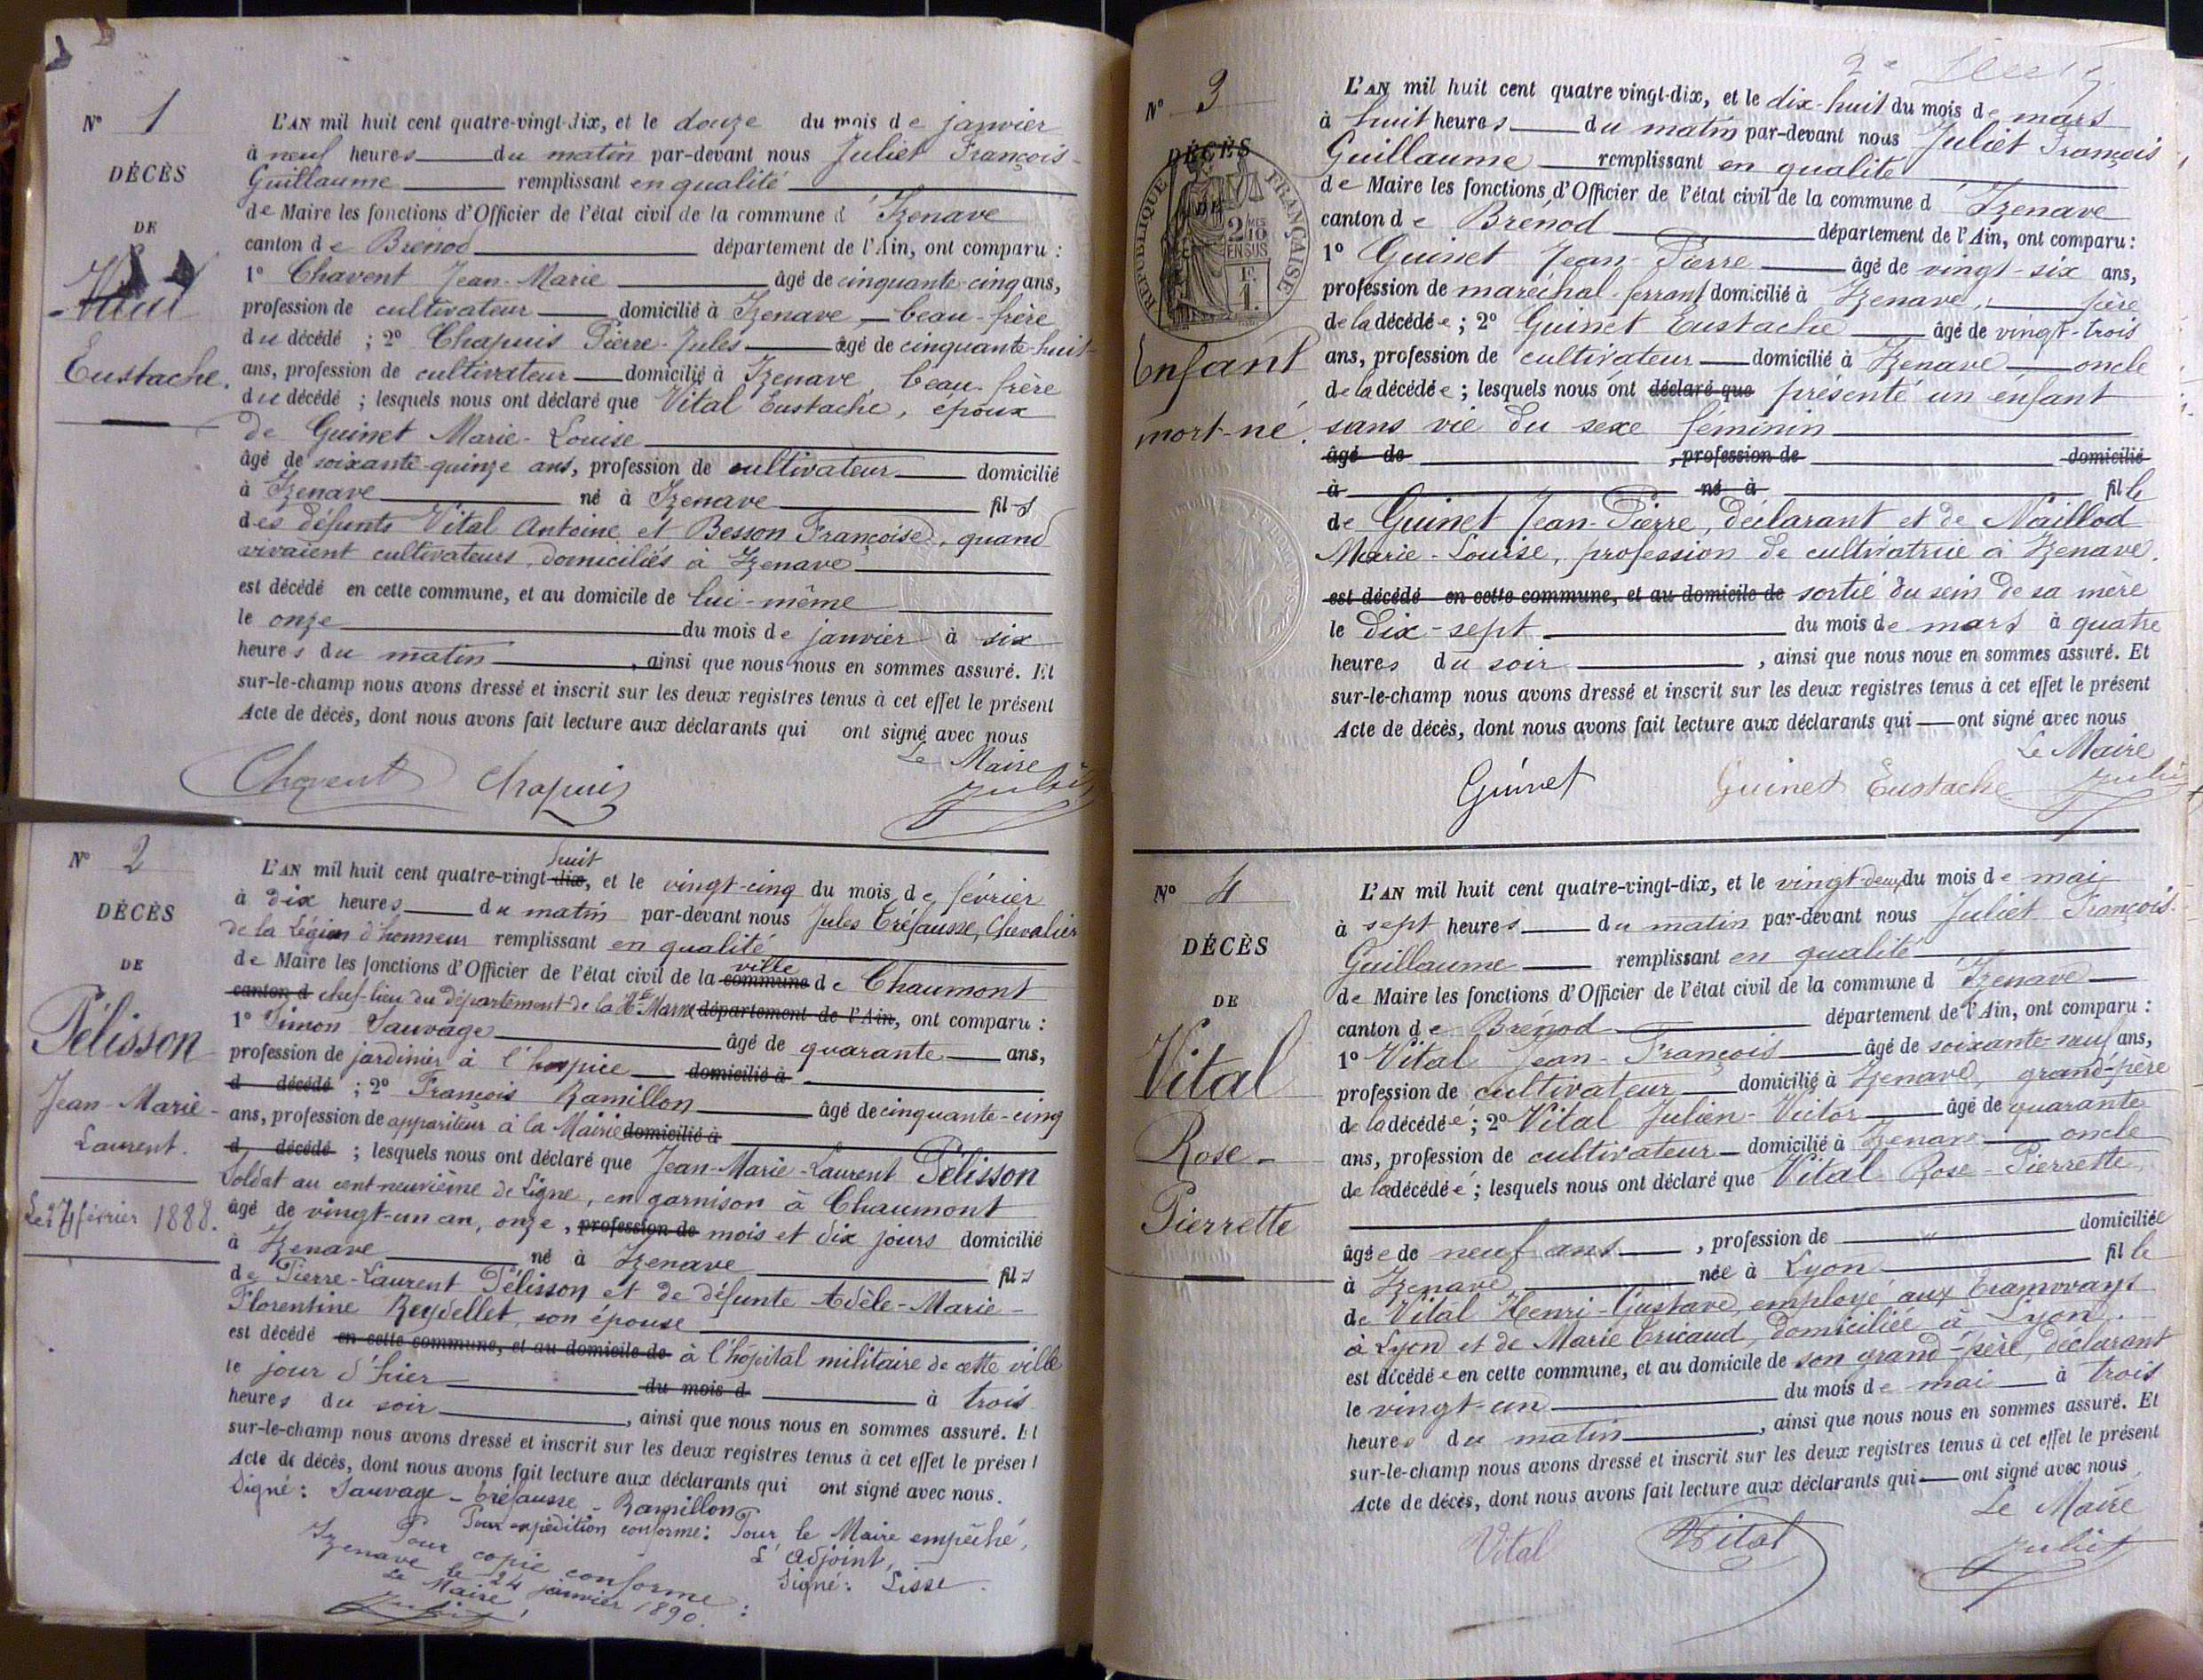 N° 1
DÉCÈS
DE
Vital
Eustache.
L'AN mil huit cent quatre-vingt-dix, et le douze du mois de janvier
à neuf heures du matin par-devant nous Juliet François-
Guillaume remplissant en qualité
de Maire les fonctions d'Officier de l'état civil de la commune d'Izenave
canton de Brénod département de l'Ain, ont comparu :
1° Chavent Jean-Marie âgé de cinquante-cinq ans,
profession de cultivateur domicilié à Izenave, beau-frère
du décédé ; 2° Chapuis Pierre-Jules âgé de cinquante-huit
ans, profession de cultivateur domicilié à Izenave, beau-frère
du décédé ; lesquels nous ont déclaré que Vital Eustache, époux
de Guinet Marie-Louise
âgé de soixante-quinze ans, profession de cultivateur domicilié
à Izenave né à Izenave fils
des défunts Vital Antoine et Besson Françoise, quand
vivaient cultivateurs, domiciliés à Izenave
est décédé en cette commune, et au domicile de lui-même
le onze du mois de janvier à six
heures du matin, ainsi que nous nous en sommes assuré. Et
sur-le-champ nous avons dressé et inscrit sur les deux registres tenus à cet effet le présent
Acte de décès, dont nous avons fait lecture aux déclarants qui ont signé avec nous
Le Maire
Chavent Chapuis Juliet
N° 2
DÉCÈS
DE
Pélisson
Jean-Marie-
Laurent.
Le 24 février 1888.
L'AN mil huit cent quatre-vingt-dix, huit et le vingt-cinq du mois de février
à dix heures du matin par-devant nous Jules Tréfausse, Chevalier
de la Légion d'honneur remplissant en qualité
de Maire les fonctions d'Officier de l'état civil de la commune ville de Chaumont
canton d chef-lieu du département de la Hte Marne département de l'Ain, ont comparu :
1° Simon Sauvage âgé de quarante ans,
profession de jardinier à l'hospice domicilié à
d décédé ; 2° François Ramillon âgé de cinquante-cinq
ans, profession de appariteur à la Mairie domicilié à
d décédé ; lesquels nous ont déclaré que Jean-Marie-Laurent Pélisson
Soldat au cent neuvième de Ligne, en garnison à Chaumont
âgé de vingt-un an, onze, profession de mois et dix jours domicilié
à Izenave né à Izenave fils
de Pierre-Laurent Pélisson et de défunte Adèle-Marie-
Florentine Reydellet, son épouse
est décédé en cette commune, et au domicile de à l'hôpital militaire de cette ville
le jour d'hier du mois d à trois
heures du soir, ainsi que nous nous en sommes assuré. Et
sur-le-champ nous avons dressé et inscrit sur les deux registres tenus à cet effet le présent
Acte de décès, dont nous avons fait lecture aux déclarants qui ont signé avec nous.
Signé : Sauvage - Tréfausse - Ramillon
Pour expédition conforme : Pour le Maire empêché,
L'Adjoint,
Signé : Lisse.
Pour copie conforme :
Izenave le 24 janvier 1890.
Le Maire,
Juliet
N° 3
DÉCÈS
RÉPUBLIQUE FRANÇAISE
2/10
EN SUS
Enfant
mort-né.
L'AN mil huit cent quatre vingt-dix, et le dix-huit du mois de mars
à huit heures du matin par-devant nous Juliet François
Guillaume remplissant en qualité
de Maire les fonctions d'Officier de l'état civil de la commune d'Izenave
canton de Brénod département de l'Ain, ont comparu :
1° Guinet Jean-Pierre âgé de vingt-six ans,
profession de maréchal-ferrant domicilié à Izenave, père
de la décédée ; 2° Guinet Eustache âgé de vingt-trois
ans, profession de cultivateur domicilié à Izenave oncle
de la décédée ; lesquels nous ont déclaré que présenté un enfant
sans vie du sexe féminin
âgé de, profession de domicilié
à né à fille
de Guinet Jean-Pierre, déclarant et de Naillod
Marie-Louise, profession de cultivatrice à Izenave.
est décédé en cette commune, et au domicile de sortie du sein de sa mère
le dix-sept du mois de mars à quatre
heures du soir, ainsi que nous nous en sommes assuré. Et
sur-le-champ nous avons dressé et inscrit sur les deux registres tenus à cet effet le présent
Acte de décès, dont nous avons fait lecture aux déclarants qui ont signé avec nous
Le Maire
Guinet Guinet Eustache Juliet
N° 4
DÉCÈS
DE
Vital
Rose-
Pierrette
L'AN mil huit cent quatre-vingt-dix, et le vingt-deux du mois de mai
à sept heures du matin par-devant nous Juliet François-
Guillaume remplissant en qualité
de Maire les fonctions d'Officier de l'état civil de la commune d'Izenave
canton de Brénod département de l'Ain, ont comparu :
1° Vital Jean-François âgé de soixante-neuf ans,
profession de cultivateur domicilié à Izenave, grand-père
de la décédée ; 2° Vital Julien-Victor âgé de quarante
ans, profession de cultivateur domicilié à Izenave oncle
de la décédée ; lesquels nous ont déclaré que Vital Rose-Pierrette,
âgée de neuf ans, profession de domiciliée
à Izenave née à Lyon fille
de Vital Henri-Gustave, employé aux tramways
à Lyon et de Marie Tricaud, domiciliée à Lyon.
est décédée en cette commune, et au domicile de son grand-père, déclarant
le vingt-un du mois de mai à trois
heures du matin, ainsi que nous nous en sommes assuré. Et
sur-le-champ nous avons dressé et inscrit sur les deux registres tenus à cet effet le présent
Acte de décès, dont nous avons fait lecture aux déclarants qui ont signé avec nous
Le Maire
Vital Vital Juliet